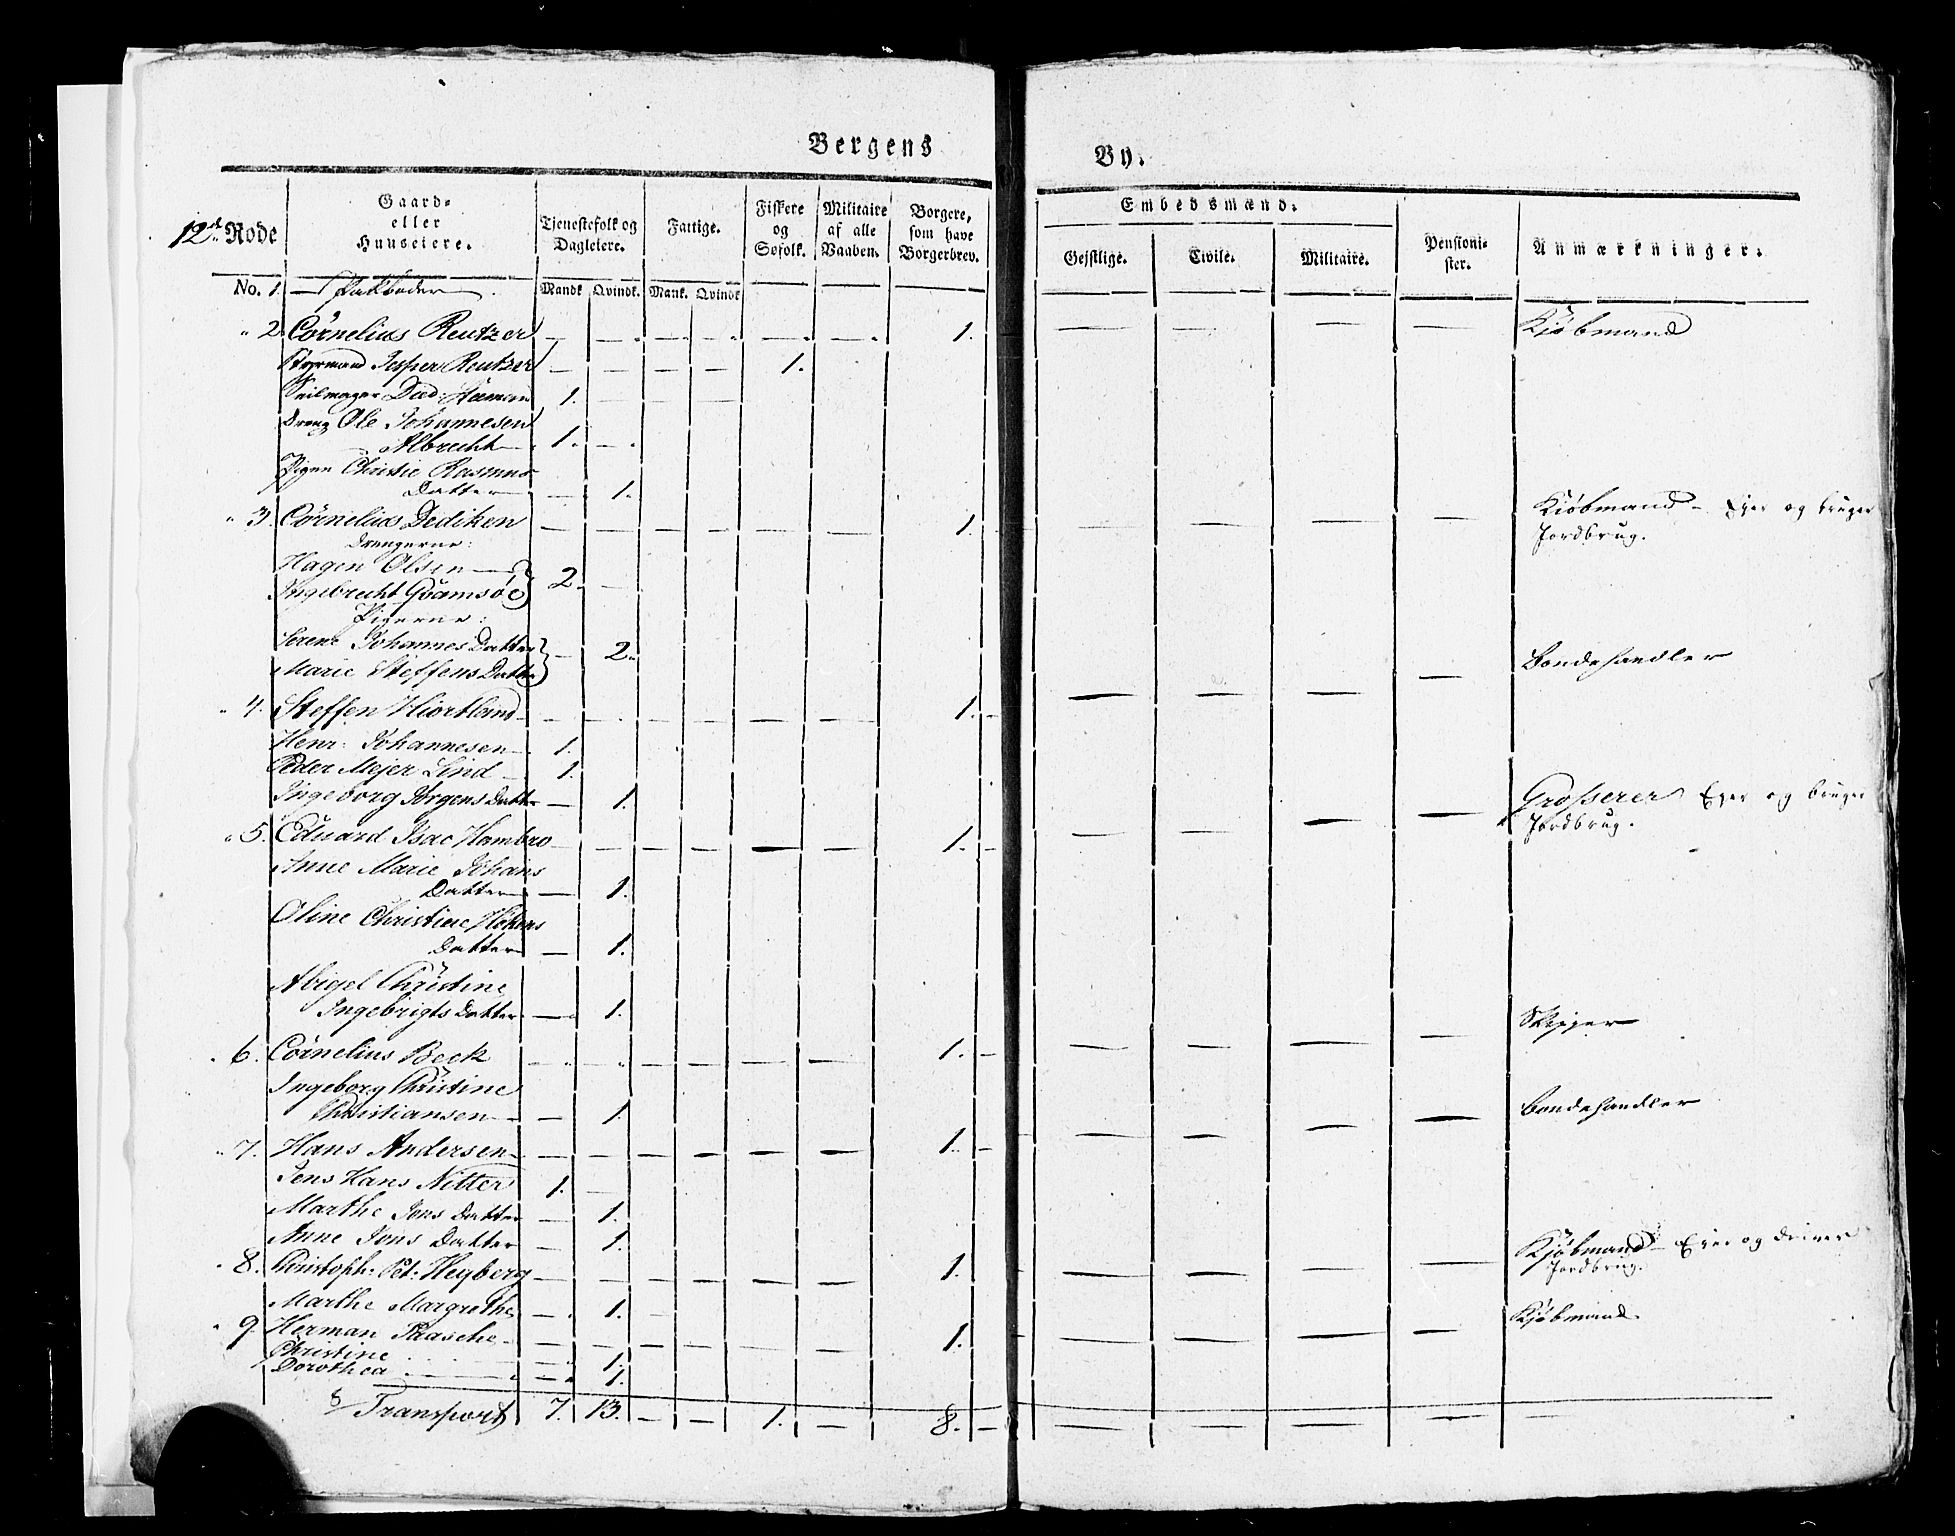 Bergens By.
12te Rode
Gaard- eller Huuseiere.
Tjenestefolk og Dagleiere.
Fattige.
Fiskere og Søfolk.
Militaire af alle Vaaben.
Borgere, som have Borgerbrev.
Embedsmænd.
Gejstlige. Civile. Militaire.
Pensionister.
Anmærkninger.
No. 1. — Pakboder — Mandk. Qvindk. Mank. Qvindk.
" 2 Cornelius Reutzer — — — — — — 1. — — — — Kjøbmand
Styrmand Jesper Reutzer — — — — 1.
Seilmager Died: 1. — — —
Dreng Ole Johannesen
Albrecht — 1. —
Pigen Christie Rasmus
Datter — — 1.
" 3. Cornelius Dediken — — — — — — 1. — — — — Kiøbmand — Ejer og bruger
Drengerne: Jordbrug.
Hagen Olsen —
Ingebrecht Gramsøe } 2. —
Pigerne:
Serene Johannes Datter
Marie Steffens Datter } — 2. Bondehandler
" 4. Steffen Hiortland — — — — — — 1. — — — — —
Henr: Johannesen — 1.
Peder Mejer Lind — 1.
Ingeborg Jørgens Datter — 1. Grosserer Ejer og bruger
" 5. Eduard Isac Hambro — — — — — — 1. — — — — — Jordbrug.
Anne Marie Johans
Datter — — 1.
Oline Christine
Datter — 1.
Abigel Christine
Ingebrigts Datter — 1. Skipper
" 6. Cornelius Beck — — — — — — 1. — — — — —
Ingeborg Christine
Christiansen — — 1. Bondehandler
" 7. Hans Andersen — — — — — — 1. — — — — —
Jens Hans Nitter 1. —
Marthe Jons Datter — 1.
Anne Jons Datter — 1. Kjøbmand — Ejer og driver
" 8. Christoph: Pet: Heyberg — — — — — — 1. — — — — Jordbrug.
Marthe Margrethe — 1. — Kjøbmand
" 9 Herman Paasche — — — — — — 1. — — — —
Christine — 1.
Dorothea — 1.
Transport 7. 13. — — 1. — 8. — — — — — —